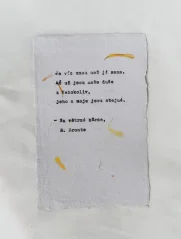 Je víc mnou než já sama.
Ať už jsou naše duše
z čehokoliv,
jeho a moje jsou stejné.
- Na větrné hůrce,
E. Bronte